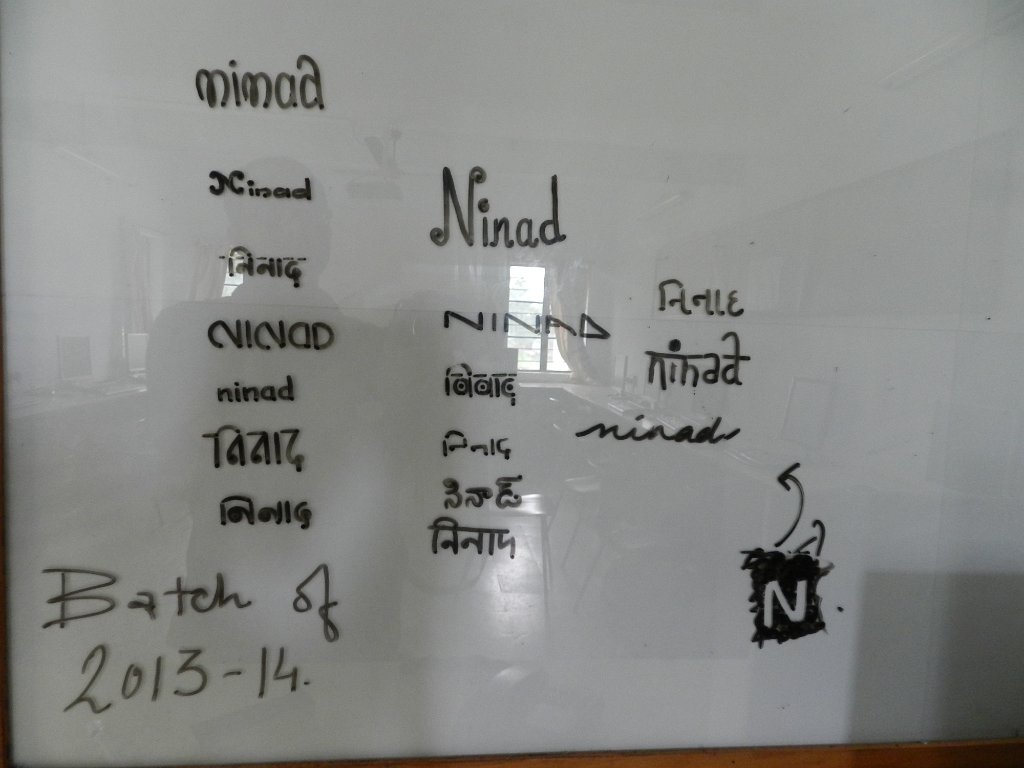 ninad
Ninad
Ninad
निनाद
નિનાદ
NINAD
NINAD
ninad
ninad
निनाद
ninad
निनाद
નિનાદ
निनाद
निनाद
N
Batch of
2013-14.